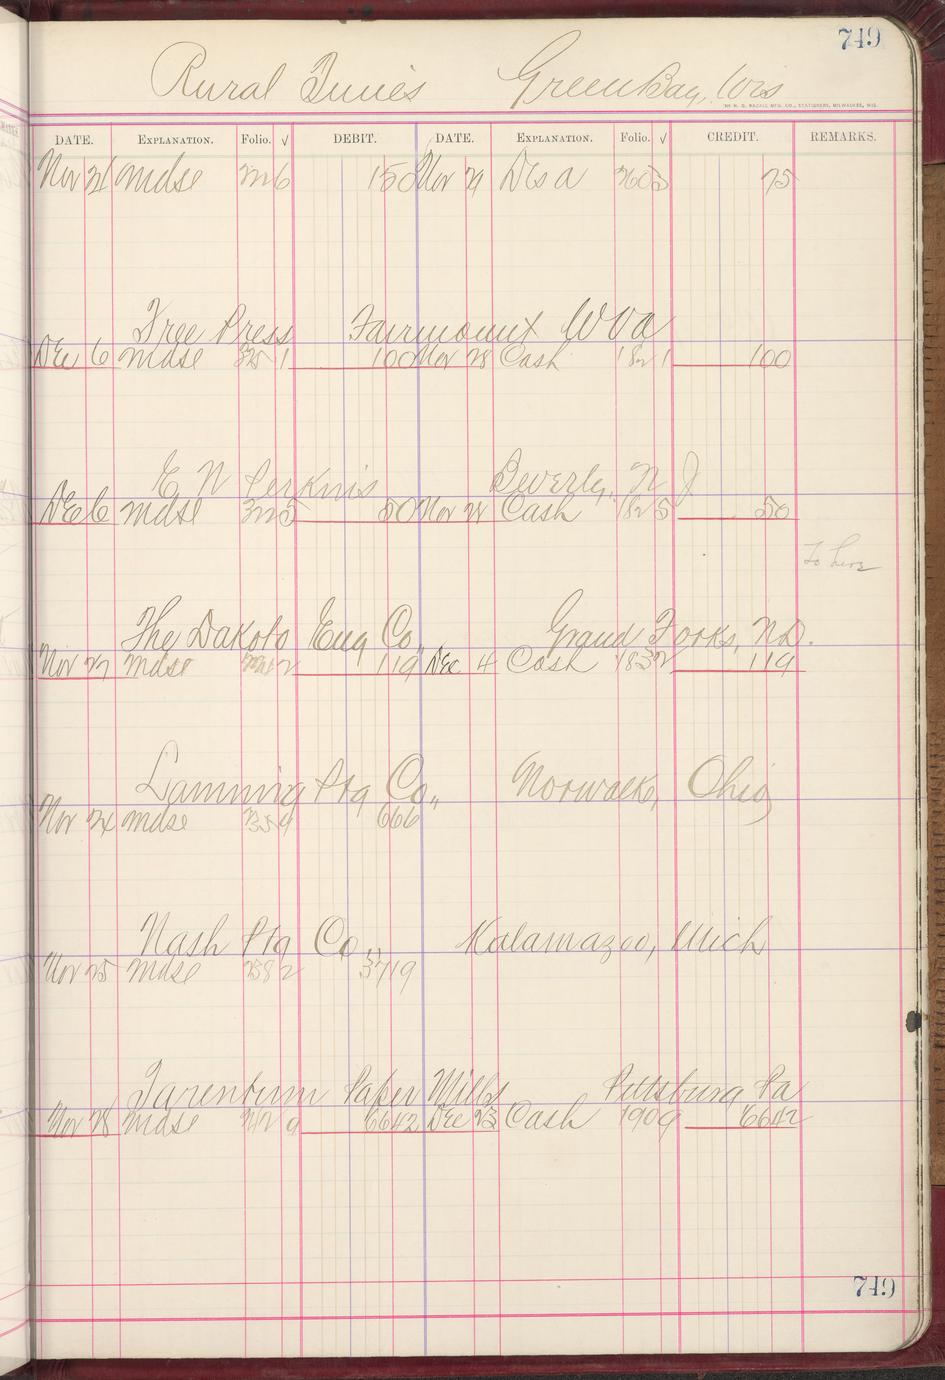 749
Rural Times Green Bay, Wis
DATE. EXPLANATION. Folio. √ DEBIT. DATE. EXPLANATION. Folio. √ CREDIT. REMARKS.
Nov 21 Mdse 150 Nov 29 75
Free Press Fairmount W Va
Dec 6 Mdse 325 1 100 Nov 28 Cash 182 1 100
E N Perkins Beverly, N J
Dec 6 Mdse 322 5 50 Nov 28 Cash 182 5 50
To here
The Dakota Eng Co., Grand Forks, N D.
Nov 27 Mdse 119 Dec 4 Cash 183 2 119
Lanning Ptg Co., Norwalk, Ohio
Nov 24 Mdse 235 9 666
Nash Ptg Co., Kalamazoo, Mich
Nov 25 Mdse 258 2 3719
Tarentum Paper Mills Pittsburg Pa
Nov 28 Mdse 6642 Dec 23 Cash 190 9 6642
749